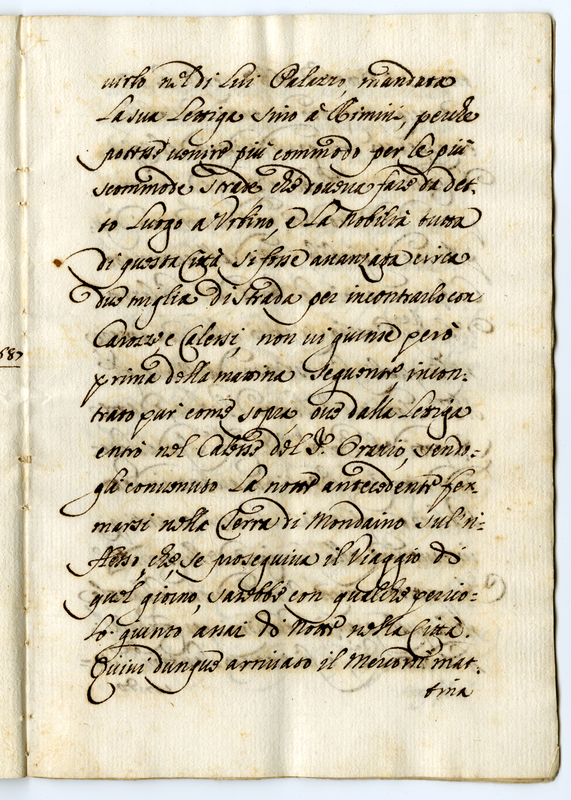 virlo nel di lui Palazzo, mandata
la sua Lettiga sino à Rimini, perche
potesse venire più commodo per le più
scommode strade che doveva fare da det-
to luogo a Urbino, e la Nobiltà tutta
di questa Città si fosse avanzata circa
due miglia di strada per incontrarlo con
Carozze e Calessi, non vi giunse però
prima della mattina seguente incon-
trato pur come sopra, ove dalla Lettiga
entrò nel Calesse del Sr. Orazio, sendo-
gli convenuto la notte antecedente fer-
marsi nella Terra di Mondaino sul ri-
flesso, che, se proseguiva il Viaggio di
quel giorno, sarebbe con qualche perico-
lo giunto anai di Notte nella Città.
Quivi dunque arrivato il Mercordì mat-
tina
587